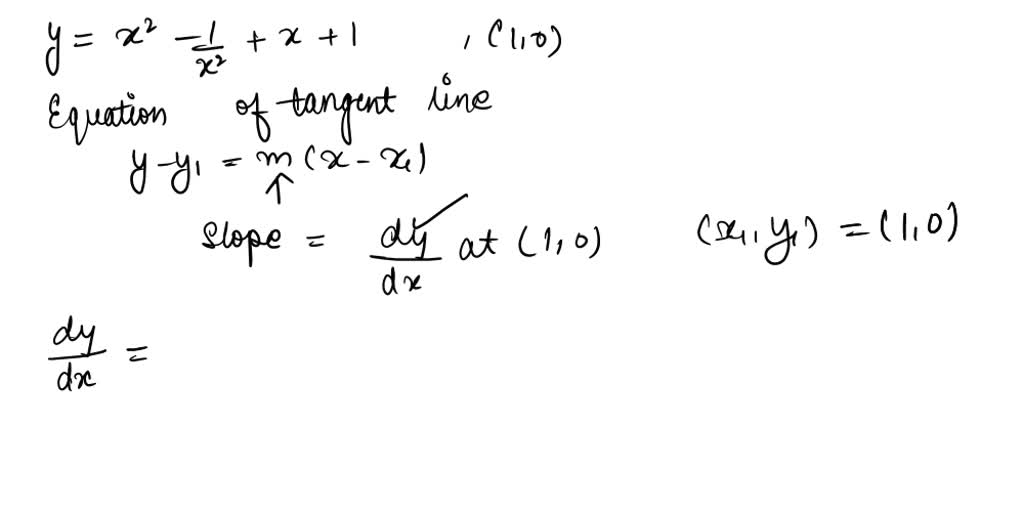 y = x² - 1/x² + x + 1 , (1,0)
Equation of tangent line
y - y₁ = m (x - x₁)
↑
Slope = dy/dx at (1,0) (x₁, y₁) = (1,0)
dy/dx =